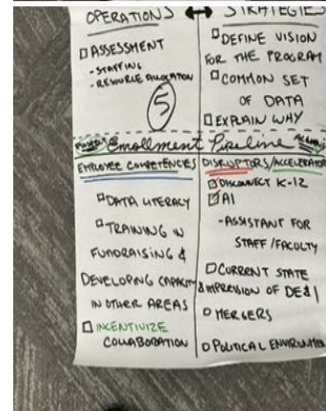 OPERATIONS ↔ STRATEGIES
☐ ASSESSMENT
- STAFFING
- RESOURCE ALLOCATION
5
☐ DEFINE VISION
FOR THE PROGRAM
☐ COMMON SET
OF DATA
☐ EXPLAIN WHY
Enrollment Pipeline
EMPLOYEE COMPETENCIES
☐ DATA LITERACY
☐ TRAINING IN
FUNDRAISING &
DEVELOPING CAPACITY
IN OTHER AREAS
☐ INCENTIVIZE
COLLABORATION
DISRUPTORS/ACCELERATOR
☑ DISCONNECT K-12
☑ AI
- ASSISTANT FOR
STAFF/FACULTY
☐ CURRENT STATE
& IMPRESSION OF DE&I
☐ MERGERS
☐ POLITICAL ENVIRONMEN